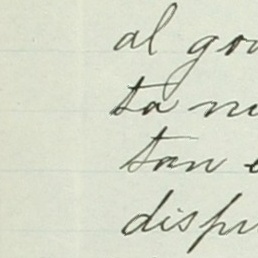 al go
ta n
tan e
disp